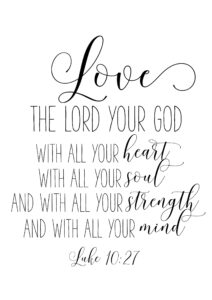 Love
THE LORD YOUR GOD
WITH ALL YOUR heart
WITH ALL YOUR soul
AND WITH ALL YOUR strength
AND WITH ALL YOUR mind
Luke 10:27